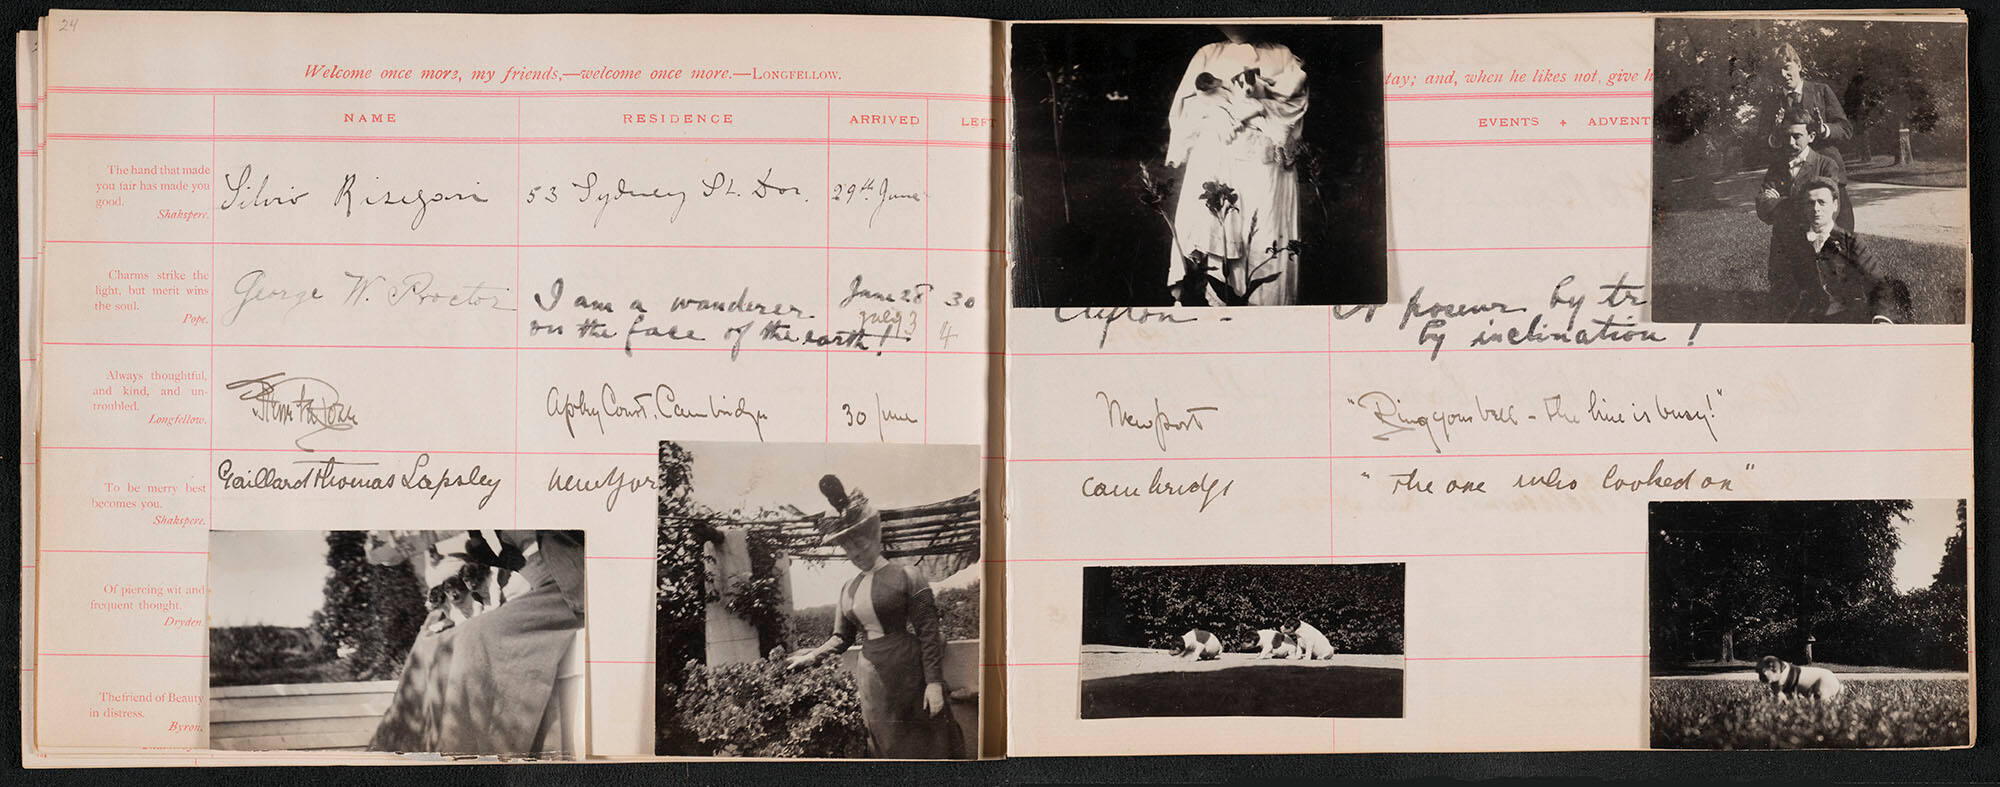 24
Welcome once more, my friends,—welcome once more.—LONGFELLOW.
NAME RESIDENCE ARRIVED LEFT
The hand that made
you fair has made you
good.
Shakspere.
Silvio Risegari 53 Sydney St. Dor. 29th June
Charms strike the
light, but merit wins
the soul.
Pope.
George W. Proctor
I am a wanderer
on the face of the earth!
June 28 30
July 3 4
Always thoughtful,
and kind, and un-
troubled.
Longfellow.
Apley Court, Cambridge 30 June
To be merry best
becomes you.
Shakspere.
Gaillard Thomas Lapsley New Yor
Of piercing wit and
frequent thought.
Dryden.
The friend of Beauty
in distress.
Byron.
tay; and, when he likes not, give h
EVENTS + ADVENT
Clifton - A poseur by tr
by inclination!
Newport "Ring your bell - the line is busy!"
Cambridge "The one who looked on"